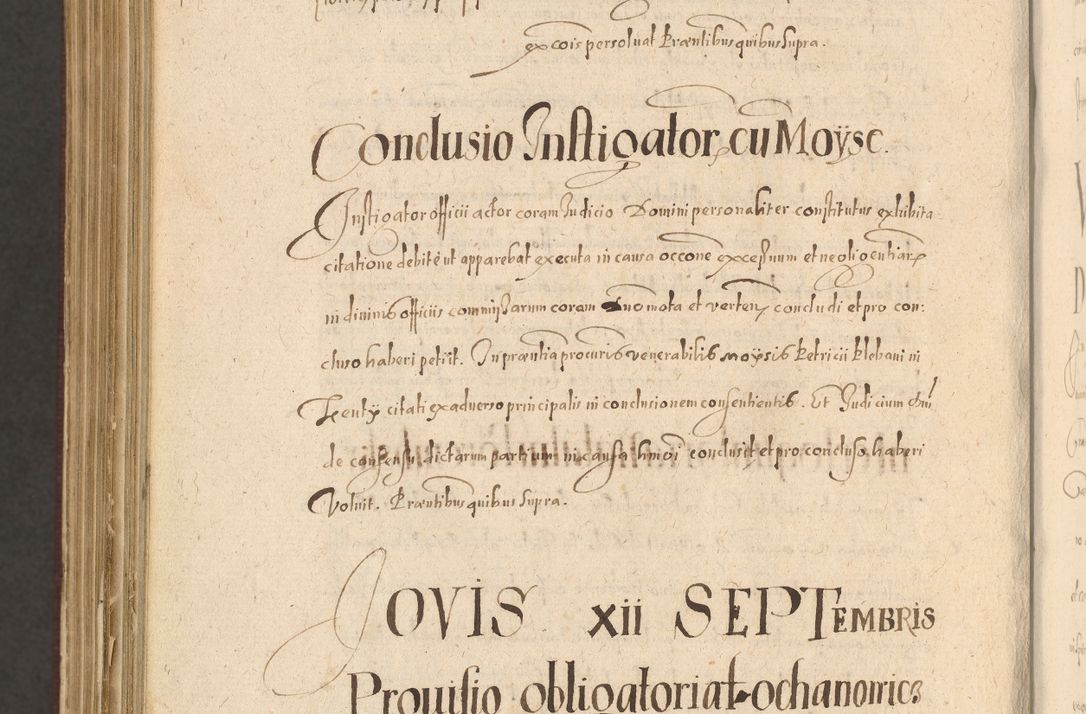 ex cois persoluat Præntibus quibus supra.
Conclusio Instigator, cu Moyse.
Instigator officii actor coram Judicio Domini personaliter constitutus exhibita
citatione debitè ut apparebat executa in causa occone excessuum et neoligentiar
in diuinis officiis commissarum coram Dno mota et verten, concludi et pro con:
cluso haberi petiit. In præntia procuris venerabilis Moysis Petricii Plebani in
Kenty citati ex aduerso principalis in conclusionem consentientis. Et Judicium Dni
de consensu dictarum partium in causa hmoi conclusit et pro concluso haberi
Voluit. Præntibus quibus supra.
JOVIS xii SEPTEMBRIS
Prouisio obligatoria